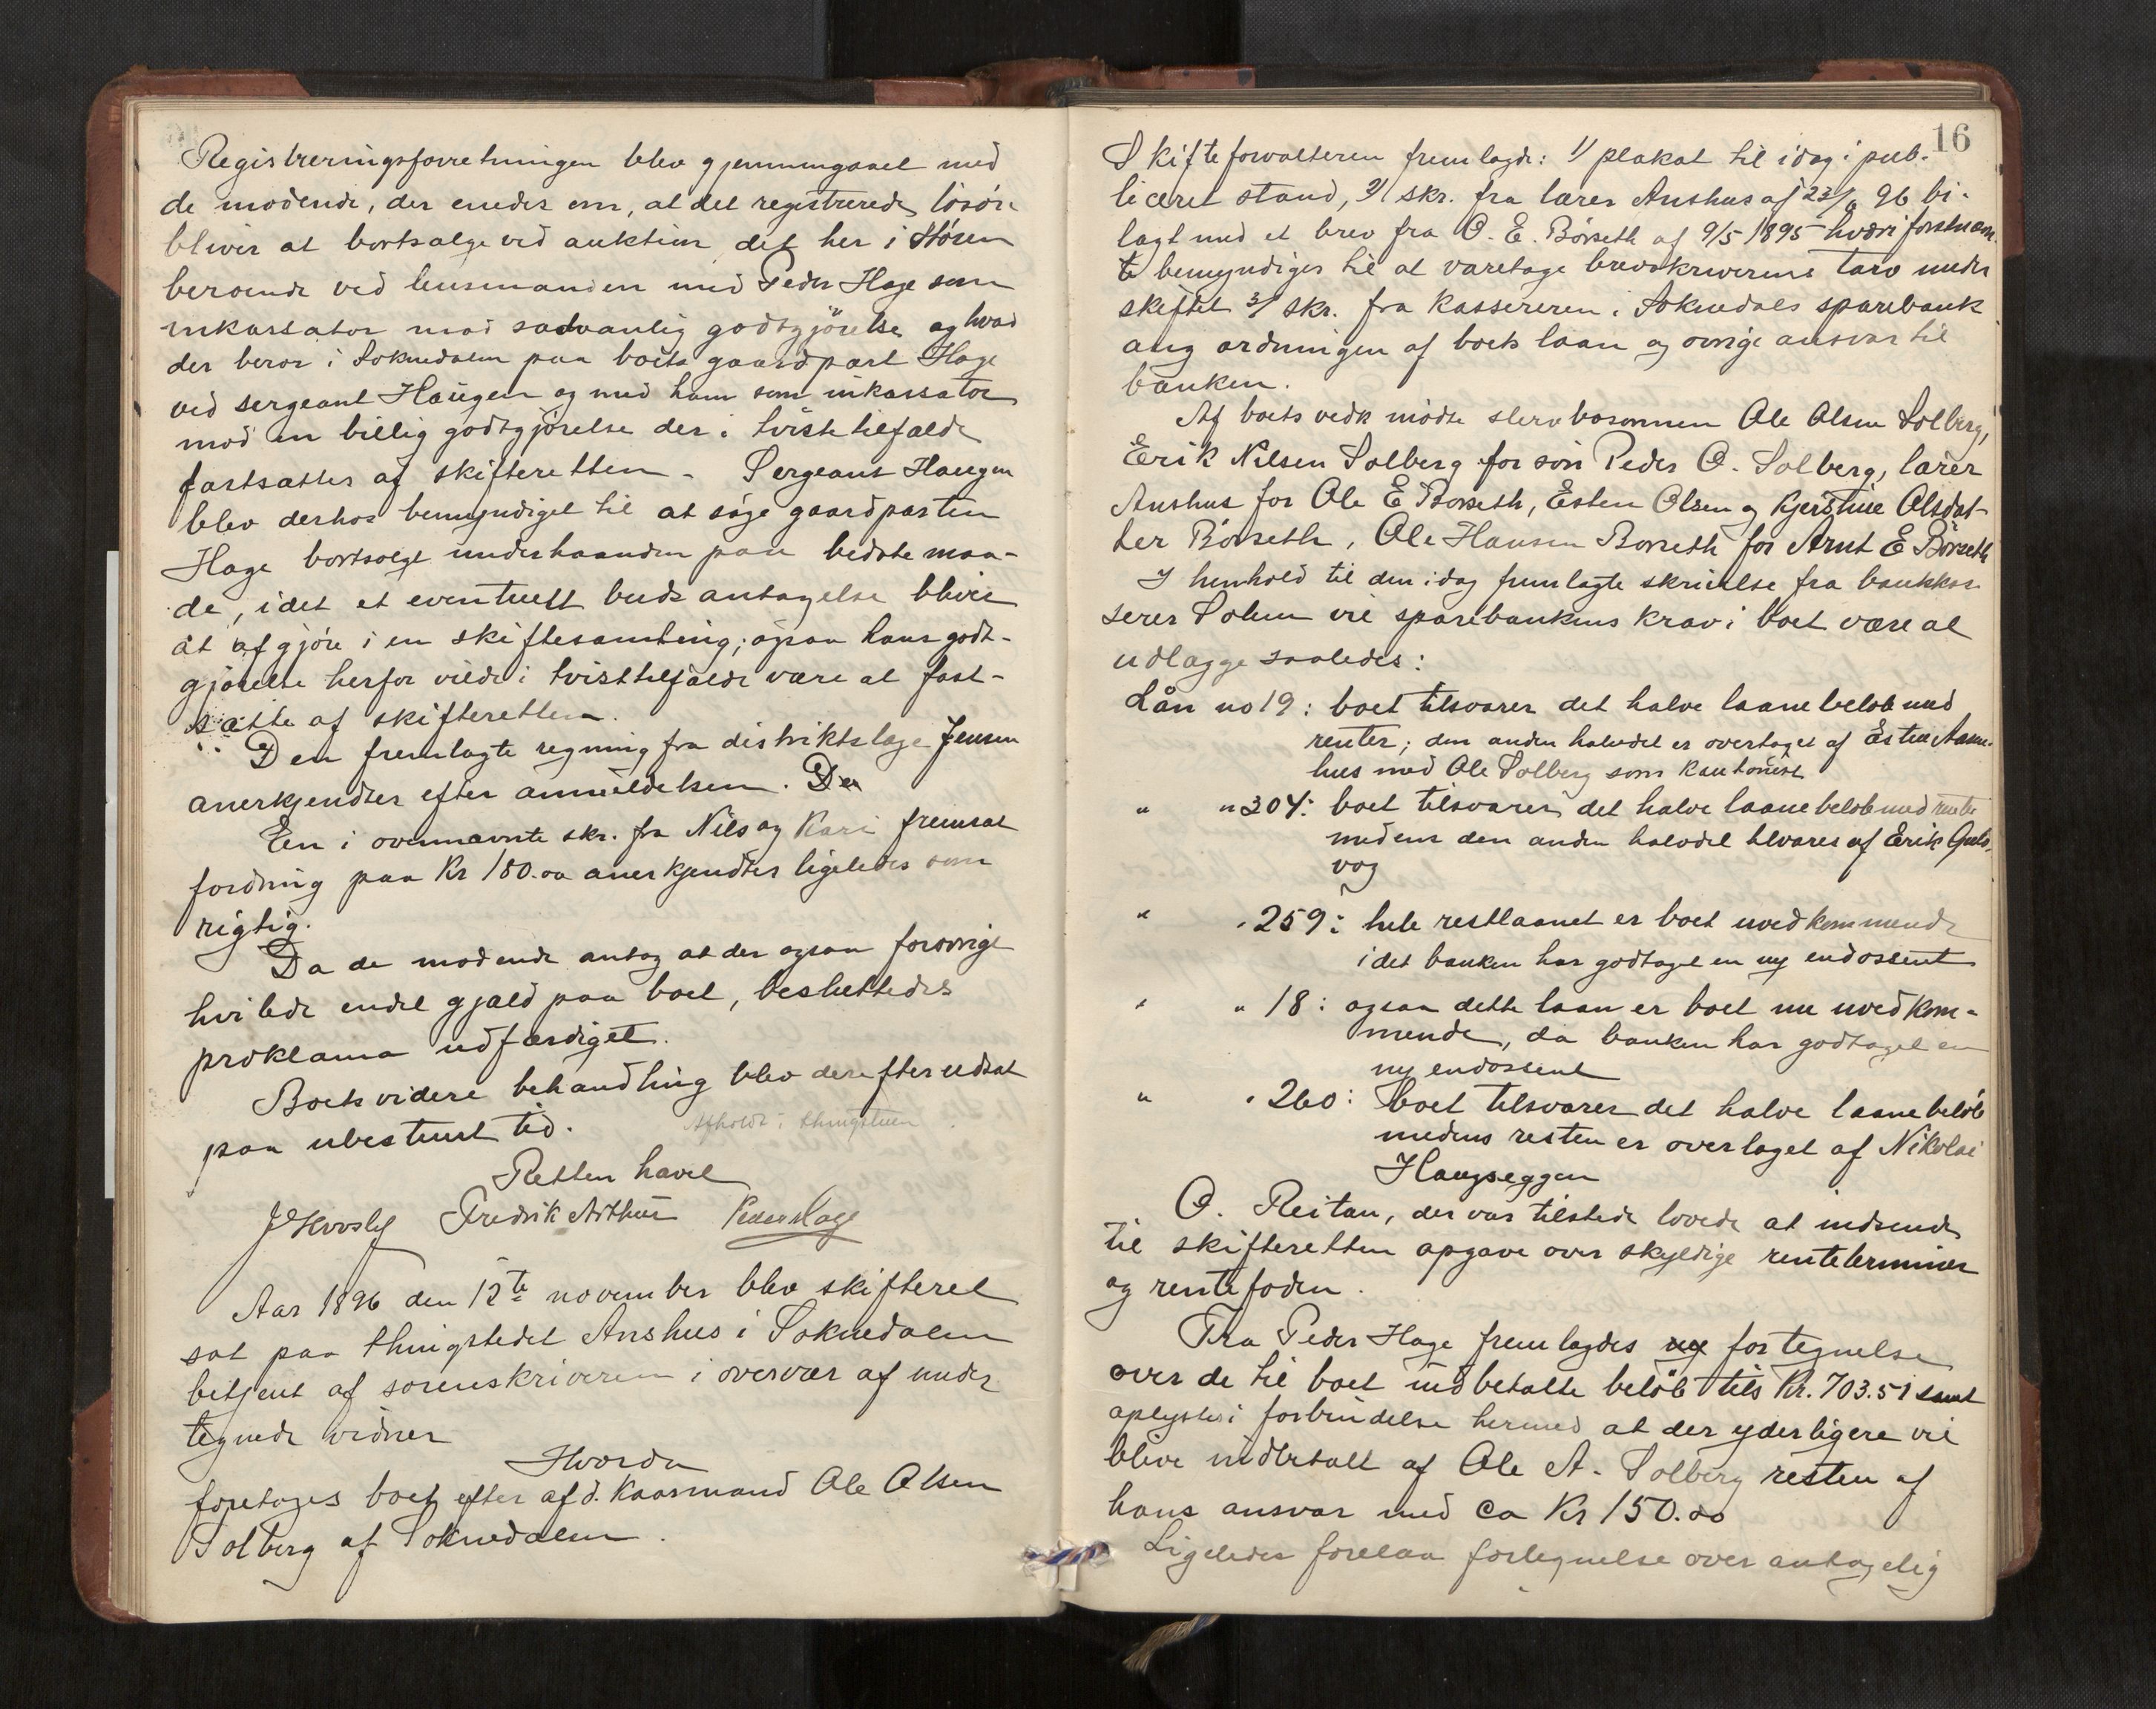 Registreringsforretningen blev gjennemgaaet med
de mødende, der enedes om, at det registrerede løsøre
bliver at bortsælge ved auktion, det her i Støren
beroende ved lensmanden med Peder Hage som
inkassator mod sædvanlig godtgjörelse og hvad
der beror i Soknedalen paa boets gaardpart Hage
ved sergeant Haugen og med ham som inkassator
mod en billig godtgjörelse der i tvisttilfælde
fastsættes af skifteretten. Sergeant Haugen
blev derhos bemyndiget til at söge gaardparten
Hage bortsolgt underhaanden paa bedste maa-
de, idet et eventuelt buds antagelse bliver
at afgjöre i en skiftesamling; ogsaa hans godt-
gjörelse herfor vilde i tvisttilfælde være at fast-
sætte af skifteretten.
Den fremlagte regning fra distriktslæge Jensen
anerkjendtes efter anmeldelsen. Da
En i ovennævnte skr. fra Nils og Kari fremsat
fordring paa Kr 180.00 anerkjendtes ligeledes som
rigtig.
Da de mødende antog at der ogsaa forøvrigt
hvilede endel gjæld paa boet, besluttedes
proklama udfærdiget.
Boets videre behandling blev derefter udsat
paa ubestemt tid.
Afholdt i thingstuen
Retten hævet
Fredrik Arthur Peder Hage
Aar 1896 den 12te november blev skifteret
sat paa thingstedet Anshus i Soknedalen
betjent af sorenskriveren i overvær af under
tegnede vidner
Hvorda
foretoges boet efter afd. kaarmand Ole Olsen
Solberg af Soknedalen.
16
Skifteforvalteren fremlagde: 1/ plakat til idag i pub-
liceret stand, 2/ skr. fra lærer Anshus af 23/6 96 bi-
lagt med et brev fra O. E. Börseth af 9/5 1895 hvori förstnævn-
te bemyndiges til at varetage brevskriverens tarv under
skiftet 3/ skr. fra kassereren i Soknedals sparebank
ang ordningen af boets laan og øvrige ansvar til
banken.
Af boets vedk mødte stervbosønnen Ole Olsen Solberg,
Erik Nilsen Solberg for sön Peder O. Solberg, lærer
Anshus for Ole E Børseth, Esten Olsen og Kjerstine Olsdat-
ter Börseth, Ole Hansen Børseth for Arnt E Börseth
I henhold til den idag fremlagte skrivelse fra bankkas
serer Solem vil sparebankens krav i boet være at
udlægge saaledes:
Lån no 19: boet tilsvarer det halve laanebeløb med
renter; den anden halvdel er overtaget af Esten Aans-
hus med Ole Solberg som kautionist
" " 304: boet tilsvarer det halve laanebeløb med renter
medens den anden halvdel tilvares af Erik Guls-
vog
" " 259: hele restlaanet er boet uvedkommende
idet banken har godtaget en ny endossent
" " 18: ogsaa dette laan er boet nu uvedkom-
mende, da banken har godtaget en
ny endossent
" " 260: boet tilsvarer det halve laanebeløb
medens resten er overtaget af Nikolai
Haugseggen
O. Reitan, der var tilstede lovede at indsende
til skifteretten opgave over skyldige renteterminer
og rentefoden.
Fra Peder Hage fremlagdes ny fortegnelse
over de til boet indbetalte belöb tils Kr. 703.51 samt
oplystes i forbindelse hermed at der yderligere vil
blive indbetalt af Ole A. Solberg resten af
hans ansvar med ca Kr 150.00
Ligeledes forelaa fortegnelse over antagelig